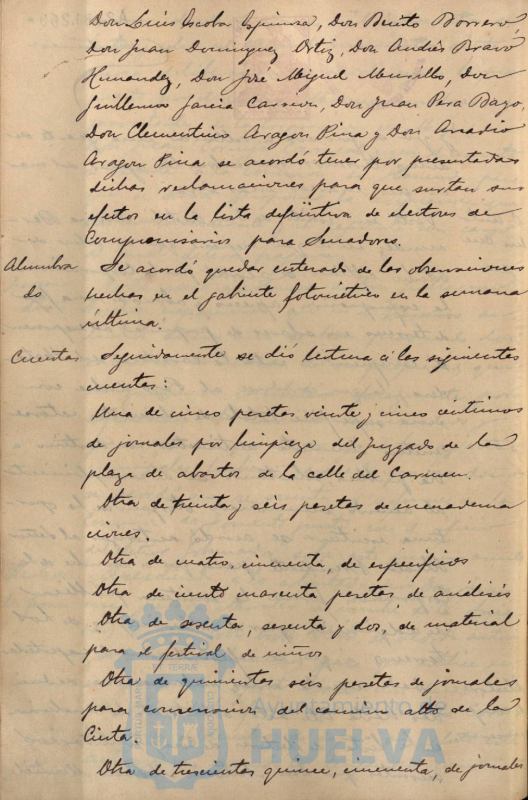 Don Luis Escoba Espinosa, Don Benito Borrero,
Don Juan Dominguez Ortiz, Don Andrés Bravo
Hernandez, Don José Miguel Murillo, Don
Guillermo Garcia Carrion, Don Juan Pera Dago,
Don Clementino Aragon Pina y Don Arcadio
Aragon Pina se acordó tener por presentadas
dichas reclamaciones para que surtan sus
efectos en la lista definitiva de electores de
Compromisarios para Senadores.
Alumbra
do
Se acordó quedar enterado de las observaciones
hechas en el gabinete fotométrico en la semana
última.
Cuentas
Seguidamente se dió lectura á las siguientes
cuentas:
Una de cinco pesetas veinte y cinco céntimos
de jornales por limpieza del Juzgado de la
plaza de abastos de la calle del Carmen.
Otra de treinta y seis pesetas de encuaderna
ciones.
Otra de cuatro, cincuenta, de específicos
Otra de ciento cuarenta pesetas de análisis
Otra de sesenta, sesenta y dos, de material
para el festival de niños
Otra de quinientas seis pesetas de jornales
para conservación del camino alto de la
Cinta.
Otra de trescientas quince, cincuenta, de jornales
Ayuntamiento de
HUELVA